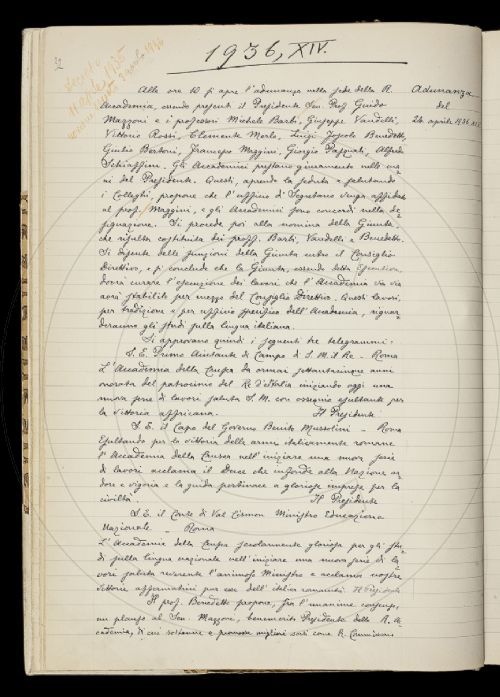 32
1936, XIV.
Adunanza
del
24 aprile 1936. XIV
Alle ore 10 si apre l'adunanza nella sede della R.
Accademia, essendo presenti il Presidente Sen. Prof. Guido
Mazzoni e i professori Michele Barbi, Giuseppe Vandelli,
Vittorio Rossi, Clemente Merlo, Luigi Foscolo Benedetto,
Giulio Bertoni, Francesco Maggini, Giorgio Pasquali, Alfredo
Schiaffini. Gli Accademici prestano giuramento nelle ma=
ni del Presidente. Questi, aprendo la seduta e salutando
i Colleghi, propone che l'ufficio di Segretario venga affidato
al prof. Maggini, e gli Accademici sono concordi nella de=
signazione. Si procede poi alla nomina della Giunta,
che risulta costituita dai proff. Barbi, Vandelli e Benedetto.
Si discute delle funzioni della Giunta entro il Consiglio
Direttivo, e si conclude che la Giunta, essendo detta Esecutiva,
dovrà curare l'esecuzione dei lavori che l'Accademia via via
avrà stabilito per mezzo del Consiglio Direttivo. Questi lavori,
per tradizione e per ufficio specifico dell'Accademia, riguar=
deranno gli studi sulla lingua italiana.
Si approvano quindi i seguenti tre telegrammi:
S. E. Primo Aiutante di Campo di S. M. il Re - Roma
L'Accademia della Crusca da ormai settantacinque anni
onorata del patrocinio del Re d'Italia iniziando oggi una
nuova serie di lavori saluta S. M. con ossequio esultante per
la vittoria affricana. Il Presidente
S. E. il Capo del Governo Benito Mussolini - Roma
Esultando per la vittoria delle armi italicamente romane
l'Accademia della Crusca nell'iniziare una nuova serie
di lavori acclama il Duce che infonde alla Nazione ar=
dore e vigoria e la guida pertinace a gloriose imprese per la
civiltà. Il Presidente
S. E. il Conte di Val Cismon Ministro Educazione
Nazionale - Roma
L'Accademia della Crusca secolarmente gloriosa per gli stu=
di sulla lingua nazionale nell'iniziare una nuova serie di la=
vori saluta reverente l'animoso Ministro e acclama nostre
vittorie affermatrici pur esse dell'italica romanità. Il Presidente
Il prof. Benedetto propone, fra l'unanime consenso,
un plauso al Sen. Mazzoni, benemerito Presidente della R. Ac=
cademia, di cui sostenne e promosse migliori sorti come R. Commissario